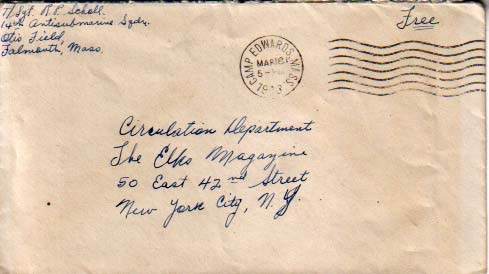 T/Sgt. R P Scholl
14th Antisubmarine Sqdn.
Otis Field,
Falmouth, Mass.
Free
CAMP EDWARDS, MASS.
MAR
5-PM
1943
Circulation Department
The Elks Magazine
50 East 42nd Street
New York City, N.Y.